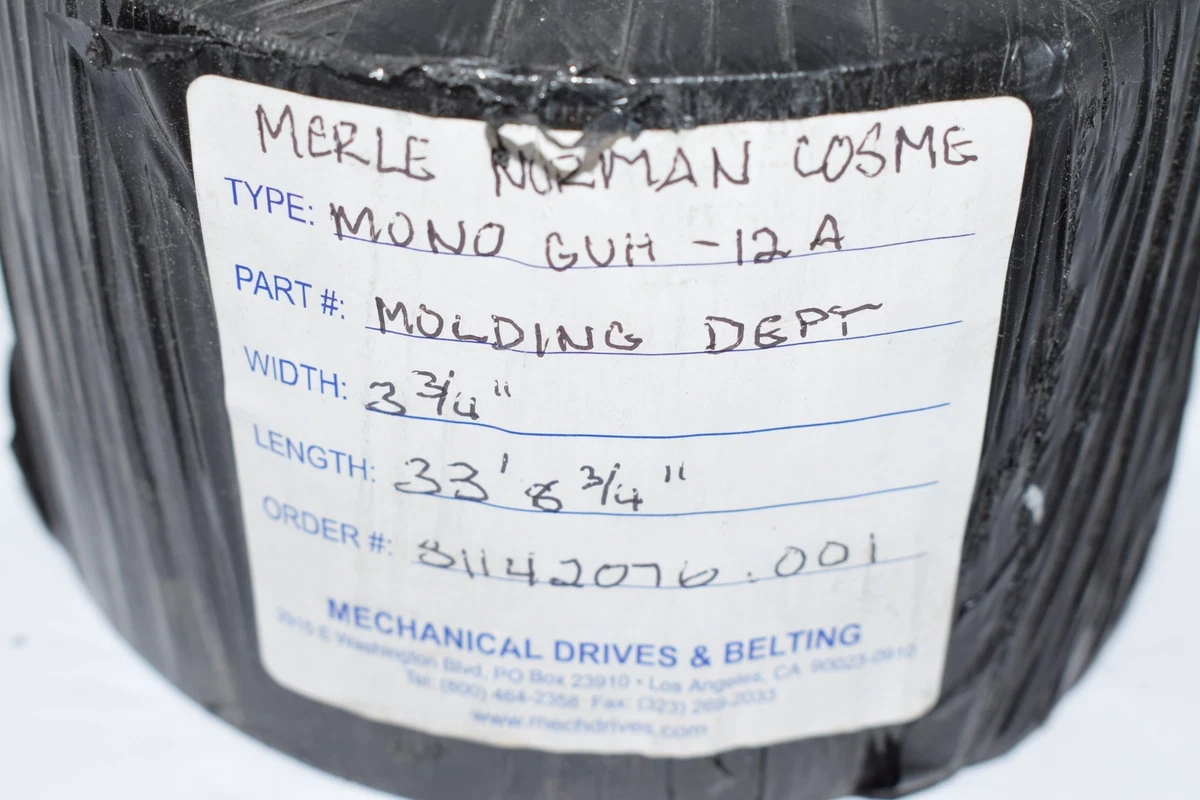 MERLE NORMAN COSME
TYPE: MONO GUH -12A
PART #: MOLDING DEPT
WIDTH: 3 3/4"
LENGTH: 33' 8 3/4"
ORDER #: 81142076.001
MECHANICAL DRIVES & BELTING
2915 E Washington Blvd, PO Box 23910 • Los Angeles, CA 90023-0912
Tel: (800) 464-2358 Fax: (323) 269-2033
www.mechdrives.com